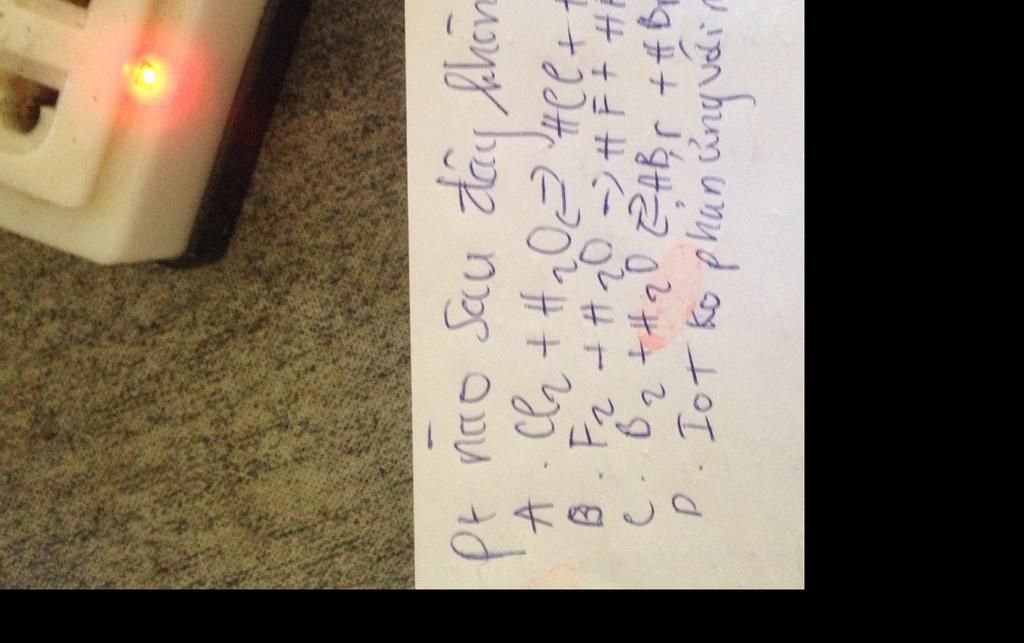 Pt nào sau đây khôn
A. Cl2 + H2O ⇌ HCl +
B. F2 + H2O → HF +
C. B2 + H2O ⇌ HBr + HB
D. Iot ko phản ứng với